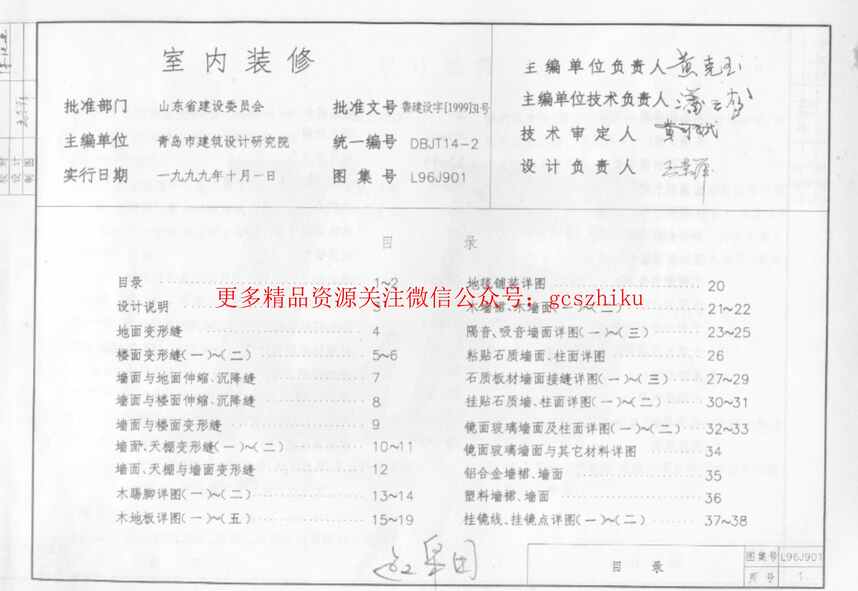 室内装修
批准部门 山东省建设委员会 批准文号 鲁建设字[1999]31号
主编单位 青岛市建筑设计研究院 统一编号 DBJT14-2
实行日期 一九九九年十月一日 图集号 L96J901
主编单位负责人
主编单位技术负责人
技术审定人
设计负责人
目 录
目录 1~2
设计说明 3
地面变形缝 4
楼面变形缝(一)~(二) 5~6
墙面与地面伸缩、沉降缝 7
墙面与楼面伸缩、沉降缝 8
墙面与楼面变形缝 9
墙面、天棚变形缝(一)~(二) 10~11
墙面、天棚与墙面变形缝 12
木踢脚详图(一)~(二) 13~14
木地板详图(一)~(五) 15~19
地毯铺装详图 20
木墙裙、木墙面(一)~(二) 21~22
隔音、吸音墙面详图(一)~(三) 23~25
粘贴石质墙面、柱面详图 26
石质板材墙面接缝详图(一)~(三) 27~29
挂贴石质墙、柱面详图(一)~(二) 30~31
镜面玻璃墙面及柱面详图(一)~(二) 32~33
镜面玻璃墙面与其它材料详图 34
铝合金墙裙、墙面 35
塑料墙裙、墙面 36
挂镜线、挂镜点详图(一)~(二) 37~38
更多精品资源关注微信公众号：gcszhiku
目 录
图集号 L96J901
页号 1